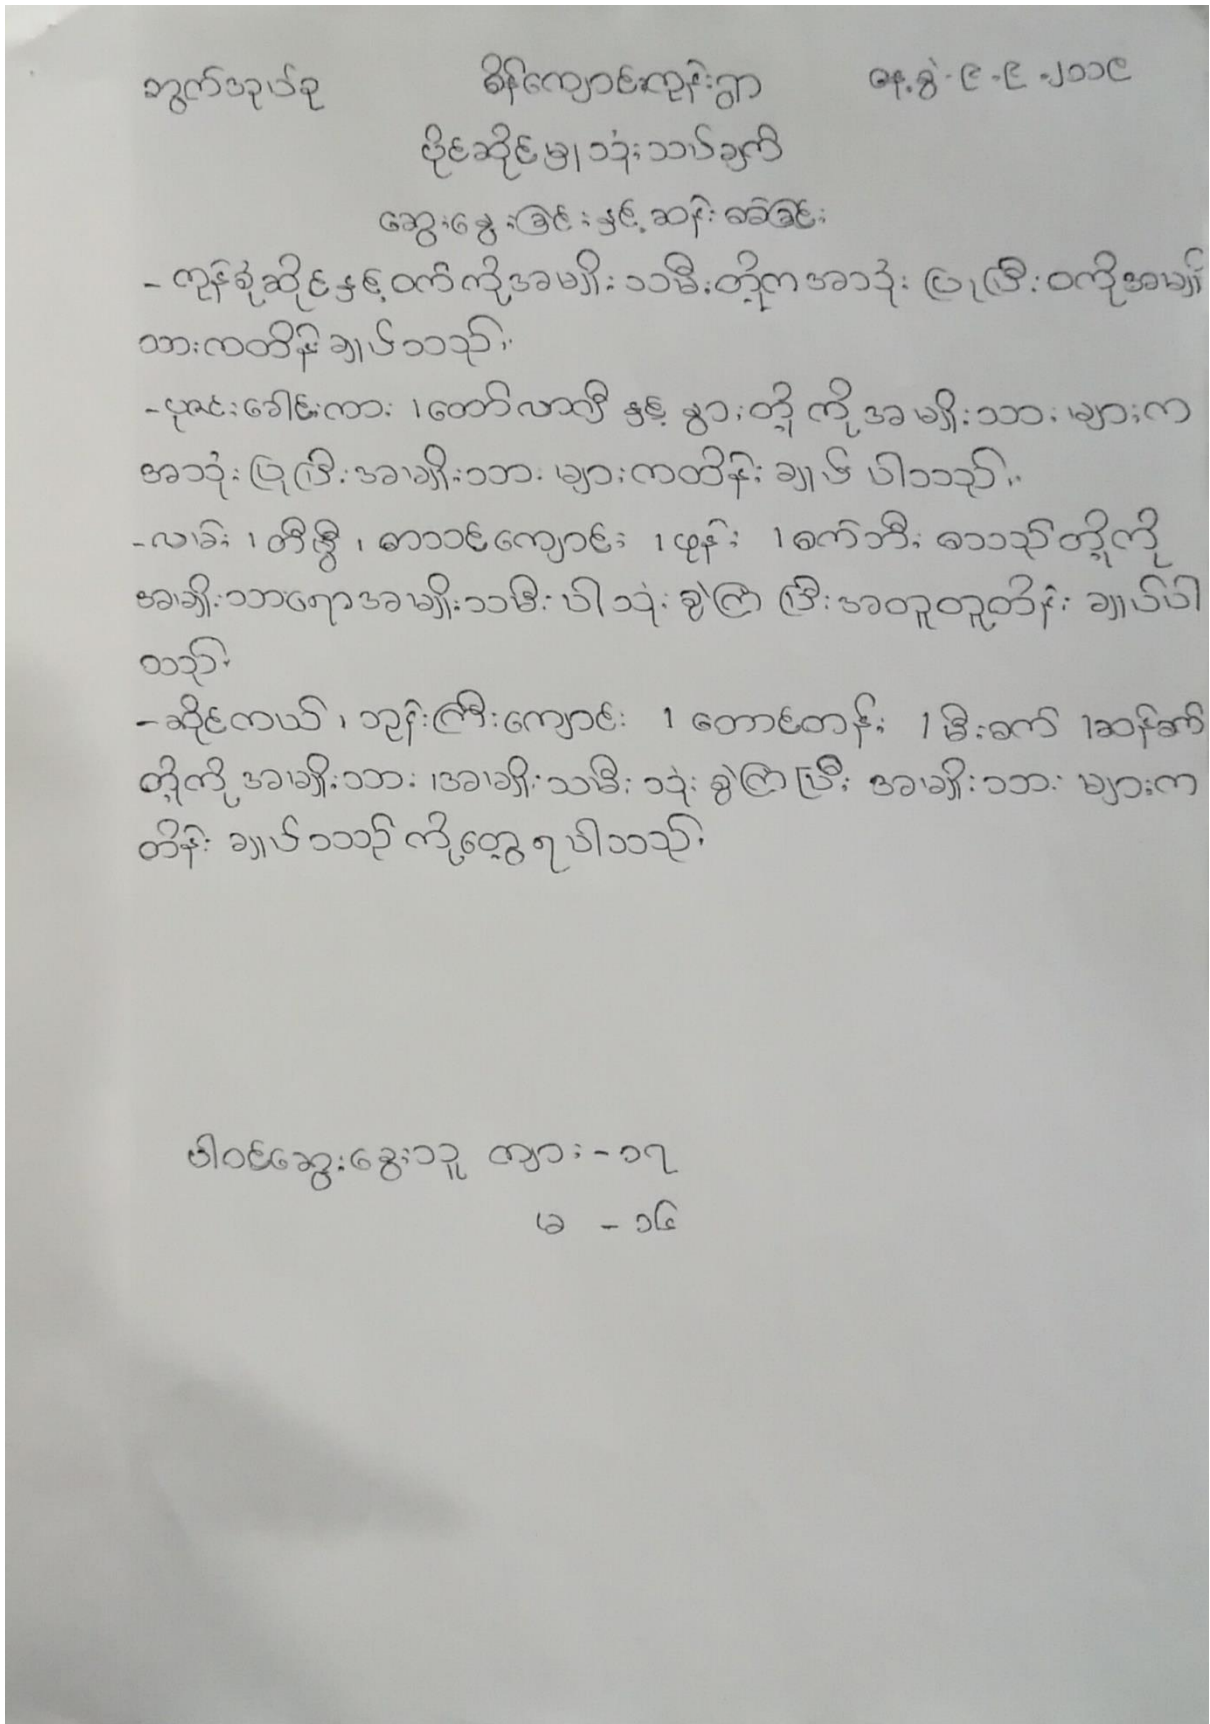 ဘွက်အုပ်စု စိန်ကျောင်းကုန်းရွာ နေ့စွဲ-၉-၉-၂၀၁၉
ပိုင်ဆိုင်မှု၊သုံးသပ်ချက်
ဆွေးနွေးခြင်းနှင့်ဆန်းစစ်ခြင်း
- ကုန်စုံဆိုင်နှင့်ဝက်ကိုအမျိုးသမီးတို့ကအသုံးပြုပြီးဝကိုအမျိုး
သားကထိန်းချုပ်သည်။
- ပုဇင်းခေါင်းကား၊တော်လာဂျီနှင့်နွားတို့ကိုအမျိုးသားများက
အသုံးပြုပြီးအမျိုးသားများကထိန်းချုပ်ပါသည်။
- လမ်း၊တီဗွီ၊စာသင်ကျောင်း၊ဖုန်း၊စက်ဘီးစသည်တို့ကို
အမျိုးသာရောအမျိုးသမီးပါသုံးစွဲကြပြီးအတူတူထိန်းချုပ်ပါ
သည်။
- ဆိုင်ကယ်၊ဘုန်းကြီးကျောင်း၊တောင်တန်း၊မီးစက်၊ဆန်စက်
တို့ကိုအမျိုးသား၊အမျိုးသမီးသုံးစွဲကြပြီးအမျိုးသားများက
ထိန်းချုပ်သည်ကိုတွေ့ရပါသည်။
ပါဝင်ဆွေးနွေးသူ ကျား - ၁၇
မ - ၁၆